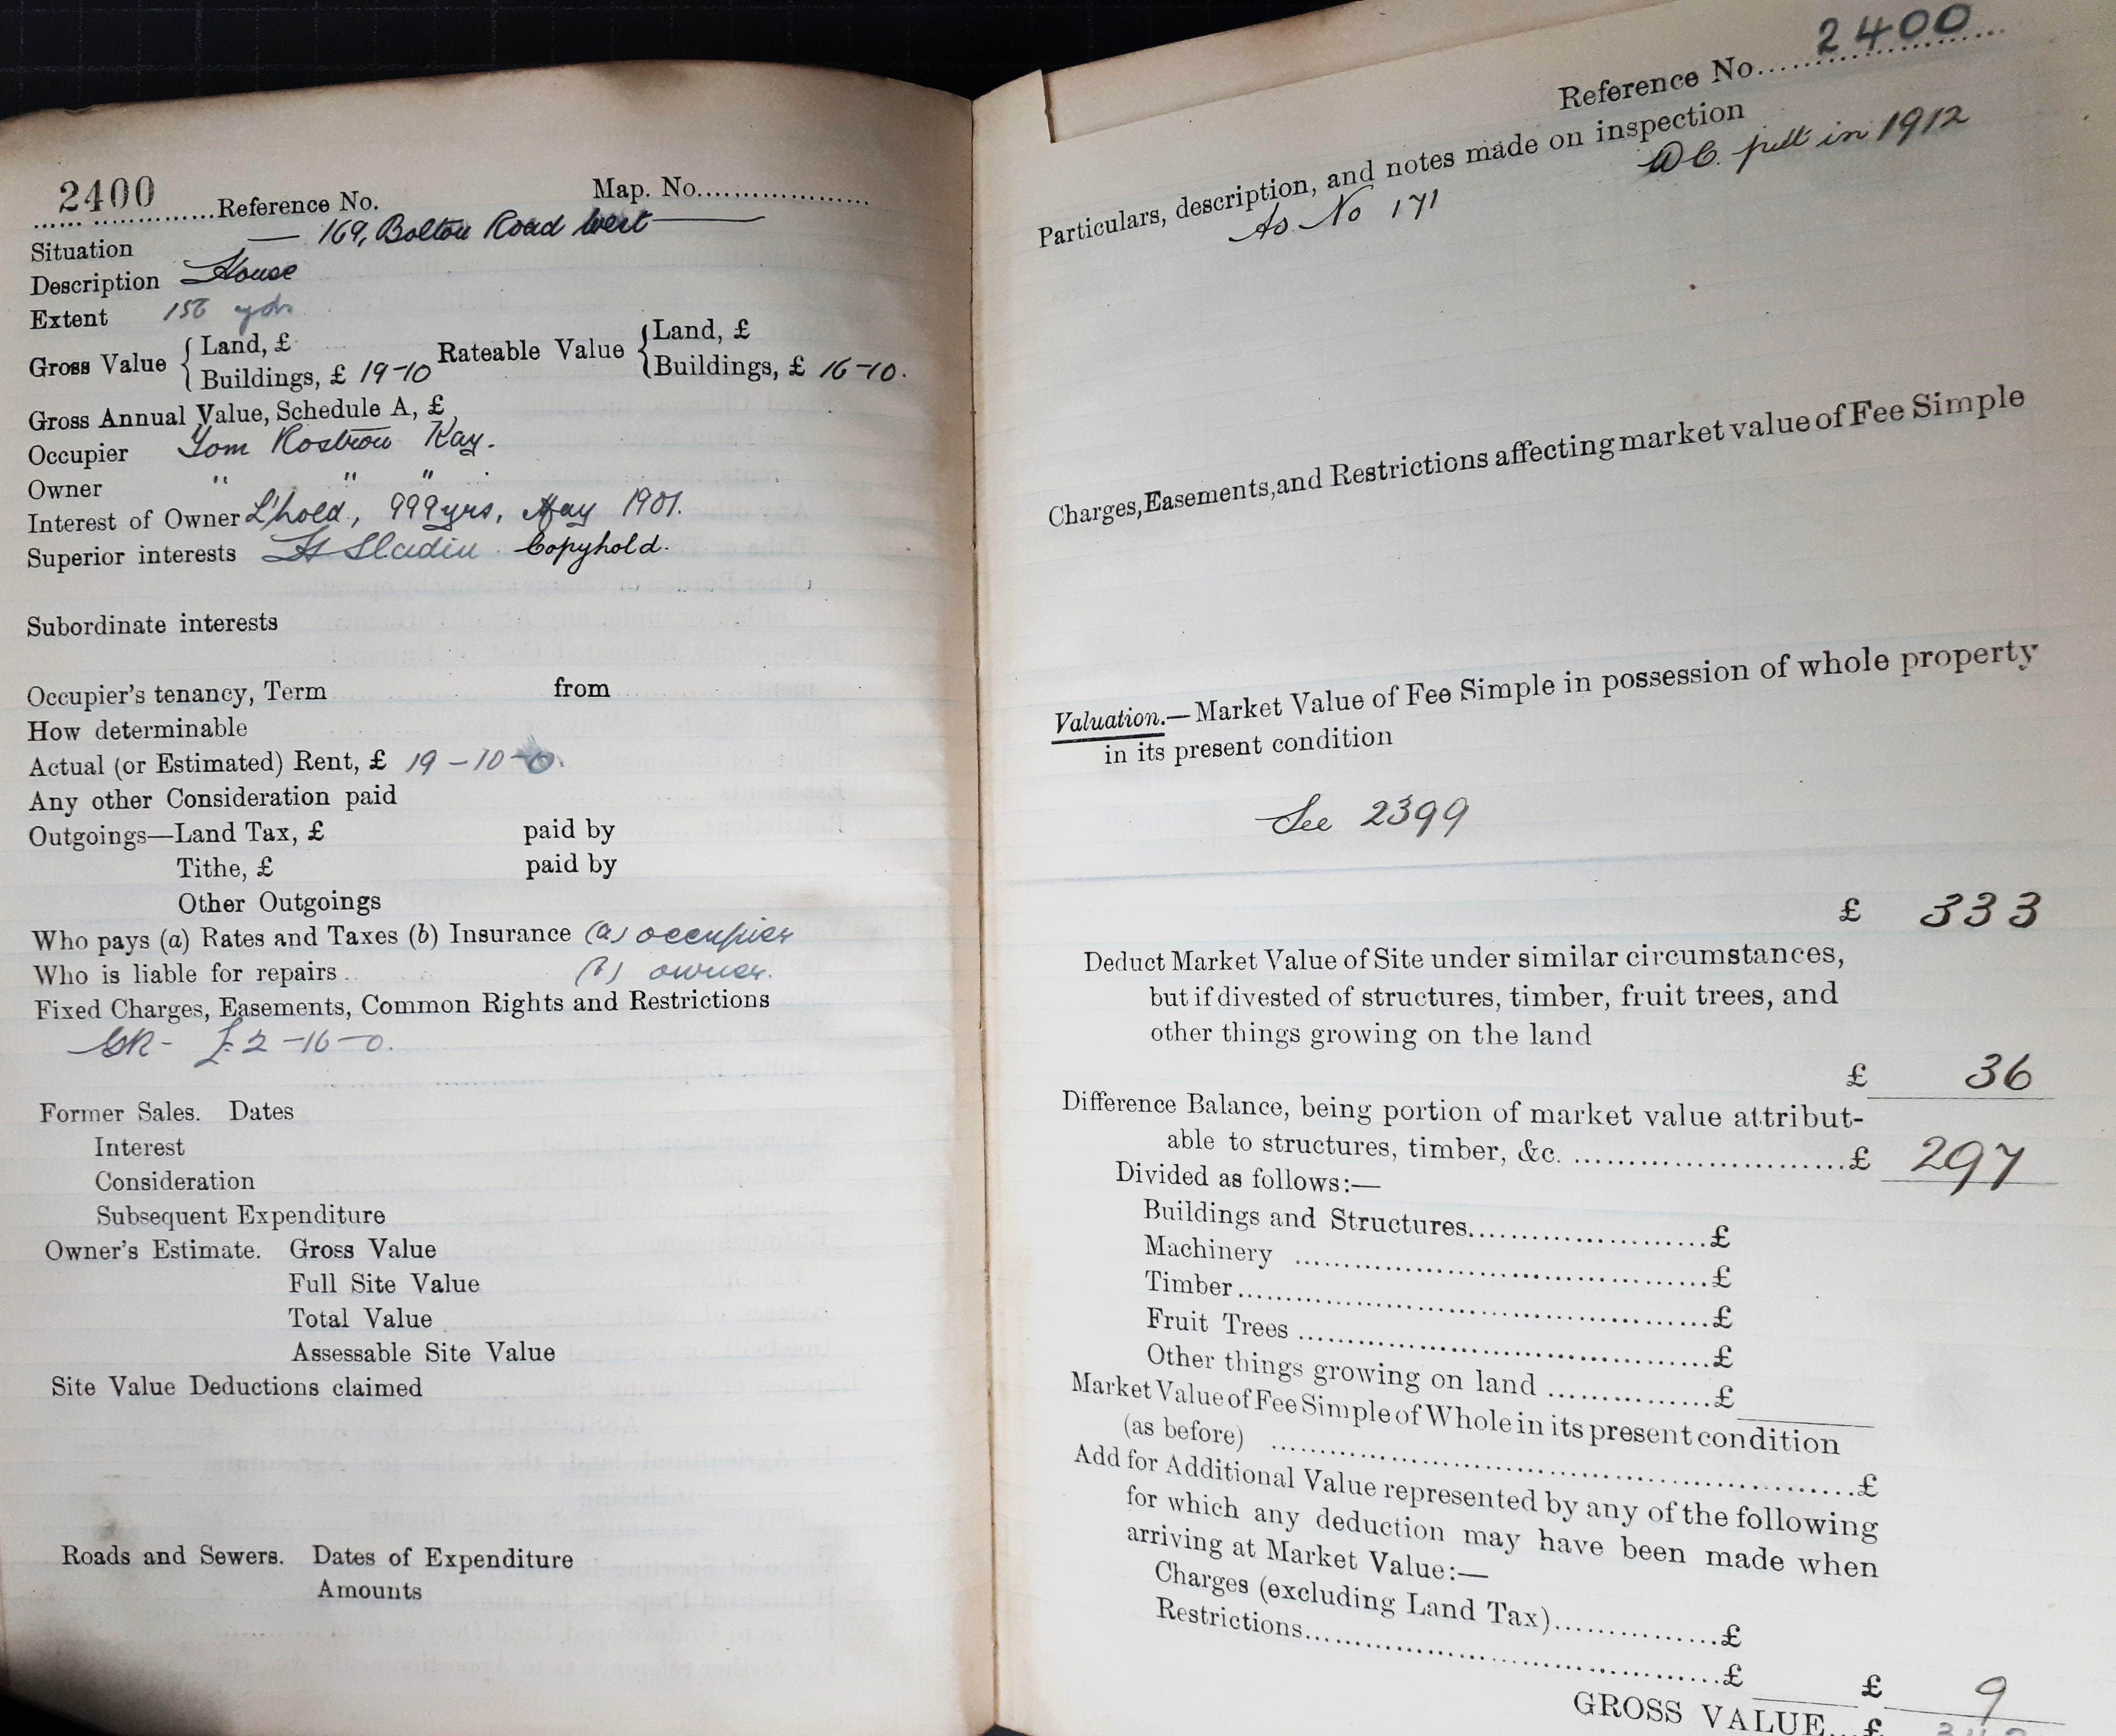 2400 Reference No. Map. No.
Situation — 169, Bolton Road West —
Description House
Extent 156 yds
Gross Value { Land, £ Rateable Value { Land, £
Buildings, £ 19-10 Buildings, £ 16-10.
Gross Annual Value, Schedule A, £
Occupier Tom Rostron Kay.
Owner " " "
Interest of Owner L'hold, 999 yrs, May 1901.
Superior interests Copyhold.
Subordinate interests
Occupier's tenancy, Term from
How determinable
Actual (or Estimated) Rent, £ 19-10-0.
Any other Consideration paid
Outgoings—Land Tax, £ paid by
Tithe, £ paid by
Other Outgoings
Who pays (a) Rates and Taxes (b) Insurance (a) occupier
Who is liable for repairs (b) owner.
Fixed Charges, Easements, Common Rights and Restrictions
GR - £2-16-0.
Former Sales. Dates
Interest
Consideration
Subsequent Expenditure
Owner's Estimate. Gross Value
Full Site Value
Total Value
Assessable Site Value
Site Value Deductions claimed
Roads and Sewers. Dates of Expenditure
Amounts
Reference No. 2400
Particulars, description, and notes made on inspection
W.C. put in 1912
As No 171
Charges, Easements, and Restrictions affecting market value of Fee Simple
Valuation.—Market Value of Fee Simple in possession of whole property
in its present condition
See 2399
£ 333
Deduct Market Value of Site under similar circumstances,
but if divested of structures, timber, fruit trees, and
other things growing on the land
£ 36
Difference Balance, being portion of market value attribut-
able to structures, timber, &c. £ 297
Divided as follows:—
Buildings and Structures £
Machinery £
Timber £
Fruit Trees £
Other things growing on land £
Market Value of Fee Simple of Whole in its present condition
(as before) £
Add for Additional Value represented by any of the following
for which any deduction may have been made when
arriving at Market Value:—
Charges (excluding Land Tax) £
Restrictions £ £ 9
GROSS VALUE... £